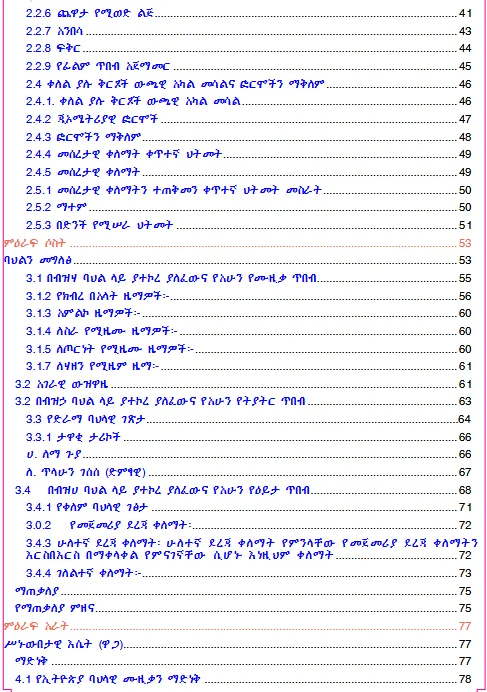 2.2.6 ጨዋታ የሚወድ ልጅ 41
2.2.7 አንበሳ 43
2.2.8 ፍቅር 44
2.2.9 የፊልም ጥበብ አጀማመር 45
2.4 ቀለል ያሉ ቅርጾች ውጫዊ አካል መሳልና ፎርሞችን ማቅለም 46
2.4.1. ቀለል ያሉ ቅርጾች ውጫዊ አካል መሳል 46
2.4.2 ጂኦሜትሪያዊ ፎርሞች 47
2.4.3 ፎርሞችን ማቅለም 48
2.4.4 መሰረታዊ ቀለማት ቀጥተኛ ህትመት 49
2.4.5 መሰረታዊ ቀለማት 49
2.5.1 መሰረታዊ ቀለማትን ተጠቅመን ቀጥተኛ ህትመት መስራት 50
2.5.2 ማተም 50
2.5.3 በድንች የሚሠራ ህትመት 51
ምዕራፍ ሶስት 53
ባህልን መግለፅ 53
3.1 በብዝሃ ባህል ላይ ያተኮረ ያለፈውና የአሁን የሙዚቃ ጥበብ 55
3.1.2 የክብረ በአላት ዜማዎች፡- 56
3.1.3 አምልኮ ዜማዎች፡- 60
3.1.4 ለስራ የሚዜሙ ዜማዎች፡- 60
3.1.5 ለጦርነት የሚዜሙ ዜማዎች፡- 60
3.1.7 ለሃዘን የሚዜም ዜማ፡- 61
3.2 አገራዊ ውዝዋዜ 61
3.2 በብዝኃ ባህል ላይ ያተኮረ ያለፈውና የአሁን የትያትር ጥበብ 63
3.3 የድራማ ባህላዊ ገጽታ 64
3.3.1 ታዋቂ ታሪኮች 66
ሀ. ለማ ጉያ 66
ለ. ጥላሁን ገሰሰ (ድምፃዊ) 67
3.4 በብዝሀ ባህል ላይ ያተኮረ ያለፈውና የአሁን የዕይታ ጥበብ 68
3.4.1 የቀለም ባህላዊ ገፅታ 71
3.0.2 የመጀመሪያ ደረጃ ቀለማት፡ 72
3.4.3 ሁለተኛ ደረጃ ቀለማት፡ ሁለተኛ ደረጃ ቀለማት የምንላቸው የመጀመሪያ ደረጃ ቀለማትን
እርስበእርስ በማቀላቀል የምናገኛቸው ሲሆኑ እነዚህም ቀለማት 72
3.4.4 ገለልተኛ ቀለማት፡- 73
ማጠቃለያ 75
የማጠቃለያ ምዘና 75
ምዕራፍ አራት 77
ሥነውበታዊ እሴት (ዋጋ) 77
ማድነቅ 77
4.1 የኢትዮጵያ ባህላዊ ሙዚቃን ማድነቅ 78